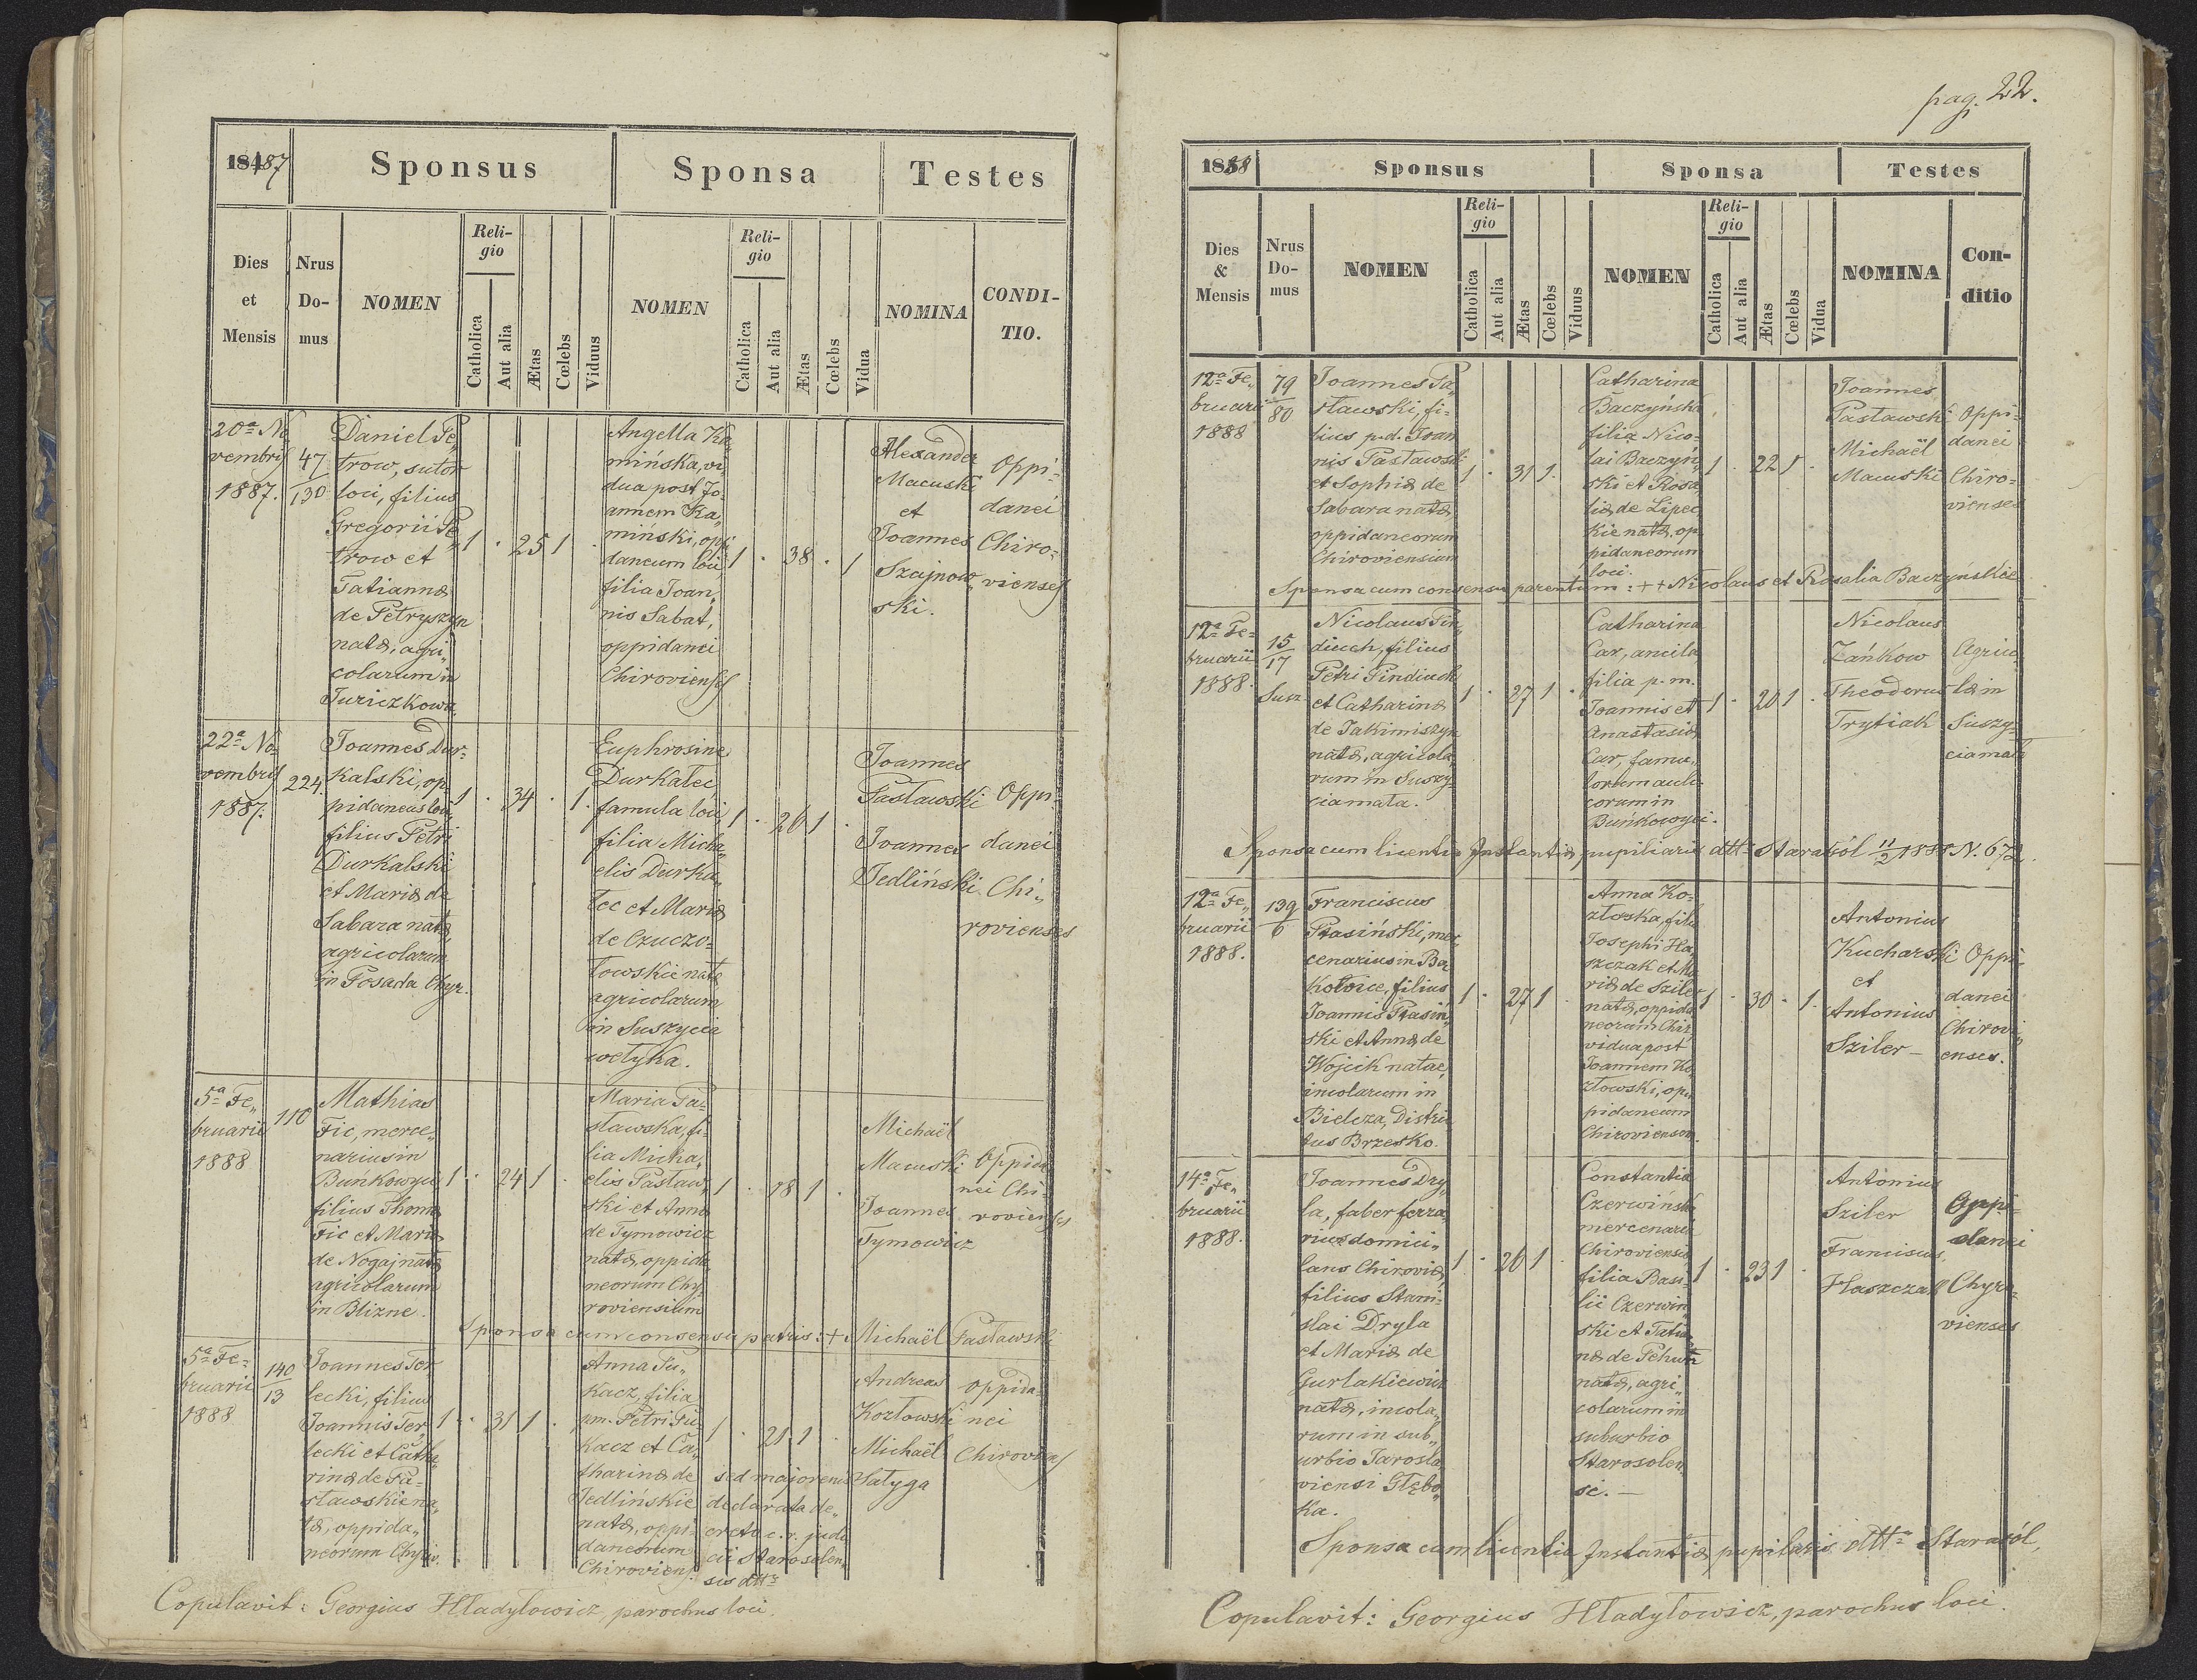 184887
Sponsus
Sponsa
Testes
Dies
et
Mensis
Nrus
Do-
mus
NOMEN
Reli-
gio
Catholica
Aut alia
Ætas
Cœlebs
Viduus
NOMEN
Reli-
gio
Catholica
Aut alia
Ætas
Cœlebs
Vidua
NOMINA
CONDI-
TIO.
20ª No
vembris
1887.
47
130
Daniel Pe„
trow, sutor
loci, filius
Gregorii Pe„
trow et
Tatiannæ
de Petryszyn
natæ, agri„
colarum in
Juriczkowa.
1 · 25 1 ·
Angella Ka„
mińska, vi
dua post Jo
annem Ka„
miński, opi
daneum loci
filia Joan„
nis Sabat,
oppidanei
Chiroviensis
1 · 38 · 1
Alexander
Macuski
et
Joannes
Szajnow„
ski.
Oppi-
danei
Chiro-
vienses
22ª No-
vembris
1887.
224
Joannes Dur-
kalski, op
pidaneus loci,
filius Petri
Durkalski
et Mariæ de
Sabara natæ,
agricolarum
in Posada Chyr.
1 · 34 · 1.
Euphrosine
Durkałec
famula loci
filia Micha„
elis Durka„
łec et Mariæ
de Czuczo-
łowskie natæ
agricolarum
in Suszycia
wełyka.
1 · 26 1 ·
Joannes
Pasławski
Joannes
Jedliński
Oppi-
danei
Chi„
rovienses
5ª Fe„
bruarii
1888
110
Mathias
Fic, merce„
narius in
Buńkowyci
filius Thomæ
Fic et Mariæ
de Nogaj natæ
agricolarum
in Blizne.
1 · 24 1 ·
Maria Pa-
sławska, fi-
lia Micha„
elis Pasław„
ski et Annæ
de Tymowicz
natæ, oppida
neorum Chy-
roviensium
1 · 18 1 ·
Michaël
Macuski
Joannes
Tymowicz
Oppida
nei Chi-
rovienses
Sponsa cum consensu patris: + Michaël Pasławski
5ª Fe-
bruarii
1888
140
13
Joannes Ter
lecki, filius
Joannis Ter„
lecki et Catha
rinæ de Pa-
sławskie na„
tæ, oppida„
neorum Chyrov.
1 · 31 1 ·
Anna Pu„
kacz, filia
pm. Petri Pu
kacz et Ca„
tharinæ de
Jedlińskie
natæ, oppi-
daneorum
Chiroviens.
1 · 21 1 ·
sed majorenis
declarata de„
creto c. r. judi
cii Starosolen„
sis dtt
Andreas
Kozłowski
Michaël
Satyga
oppida-
nei
Chirovienses
Copulavit: Georgius Hładyłowicz, parochus loci.
pag. 22.
1888
Sponsus
Sponsa
Testes
Dies
&
Mensis
Nrus
Do-
mus
NOMEN
Reli-
gio
Catholica
Aut alia
Ætas
Cœlebs
Viduus
NOMEN
Reli-
gio
Catholica
Aut alia
Ætas
Cœlebs
Vidua
NOMINA
Con-
ditio
12ª Fe„
bruarii
1888
79
80
Joannes Pa
sławski, fi-
lius p.d. Joan
nis Pasławski
et Sophiæ de
Sabara natæ,
oppidaneorum
Chiroviensium
1 · 31 1.
Catharina
Baczyńska,
filia Nico-
lai Baczyń„
ski et Rosa„
liæ de Lipec„
kie natæ, op
pidaneorum
loci.
1 · 22 1 ·
Joannes
Pasławski
Michaël
Macuski
Oppi-
danei
Chiro-
vienses
Sponsa cum consensu parentum: ++ Nicolaus et Rosalia Baczyńskie
12ª Fe-
bruarii
1888.
15
17
Susz.
Nicolaus Pin„
diuch, filius
Petri Pindiuch
et Catharinæ
de Jakimiszyn
natæ, agricola„
rum in Suszy-
cia mała.
1 · 27 1 ·
Catharina
Car, ancila
filia p. m.
Joannis et
Anastasiæ
Car, famu„
lorum auli-
corum in
Buńkowyci.
1 · 20 1 ·
Nicolaus
Zańkow
Theodorus
Trytiak
Agrico„
læ in
Suszy-
cia mała
Sponsa cum licentia Instantiæ pupillaris dttº Starasól 11/2 1888 N. 672.
12ª Fe„
bruarii
1888.
139
6
Franciscus
Ptasiński, mer„
cenarius in Bą
kowice, filius
Joannis Ptasiń„
ski et Annæ de
Wojcik natae,
incolarum in
Bielcza, Distric
tus Brzesko.
1 · 27 1 ·
Anna Ko-
złoska, filia
Josephi Ha„
szczak et Ma
riæ de Sziler
natæ, oppida
neorum Chir.
vidua post
Joannem Ko
złowski, op„
pidaneum
Chiroviensem.
1 · 30 · 1.
Antonius
Kucharski
et
Antonius
Sziler –
Oppi-
danei
Chirovi„
enses.
14ª Fe„
bruarii
1888.
Joannes Dry„
la, faber ferra„
rius domici„
lans Chiroviæ,
filius Stani-
slai Dryla
et Mariæ de
Gurlakiewicz
natæ, incola„
rum in sub„
urbio Jarosla
viensi Głębo„
ka.
1 · 26 1 ·
Constantia
Czerwińska
mercenaria
Chiroviensis,
filia Basi-
lii Czerwiń„
ski et Tatia„
næ de Pehut
natæ, agri„
colarum in
suburbio
Starosolen„
si. –
1 · 23 1 ·
Antonius
Sziler
Franciscus
Haszczak
Oppi-
danei
Chyro-
vienses
Sponsa cum licentia Instantiæ pupilaris dttº Starasól,
Copulavit: Georgius Hładyłowicz, parochus loci.